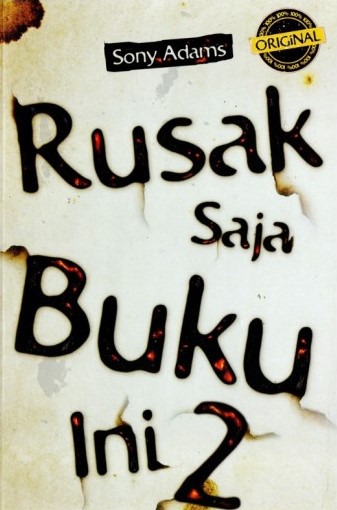 Sony Adams
100% 100% 100% 100% 100%
ORIGiNAL
100% 100% 100% 100%
Rusak
Saja
Buku
Ini 2